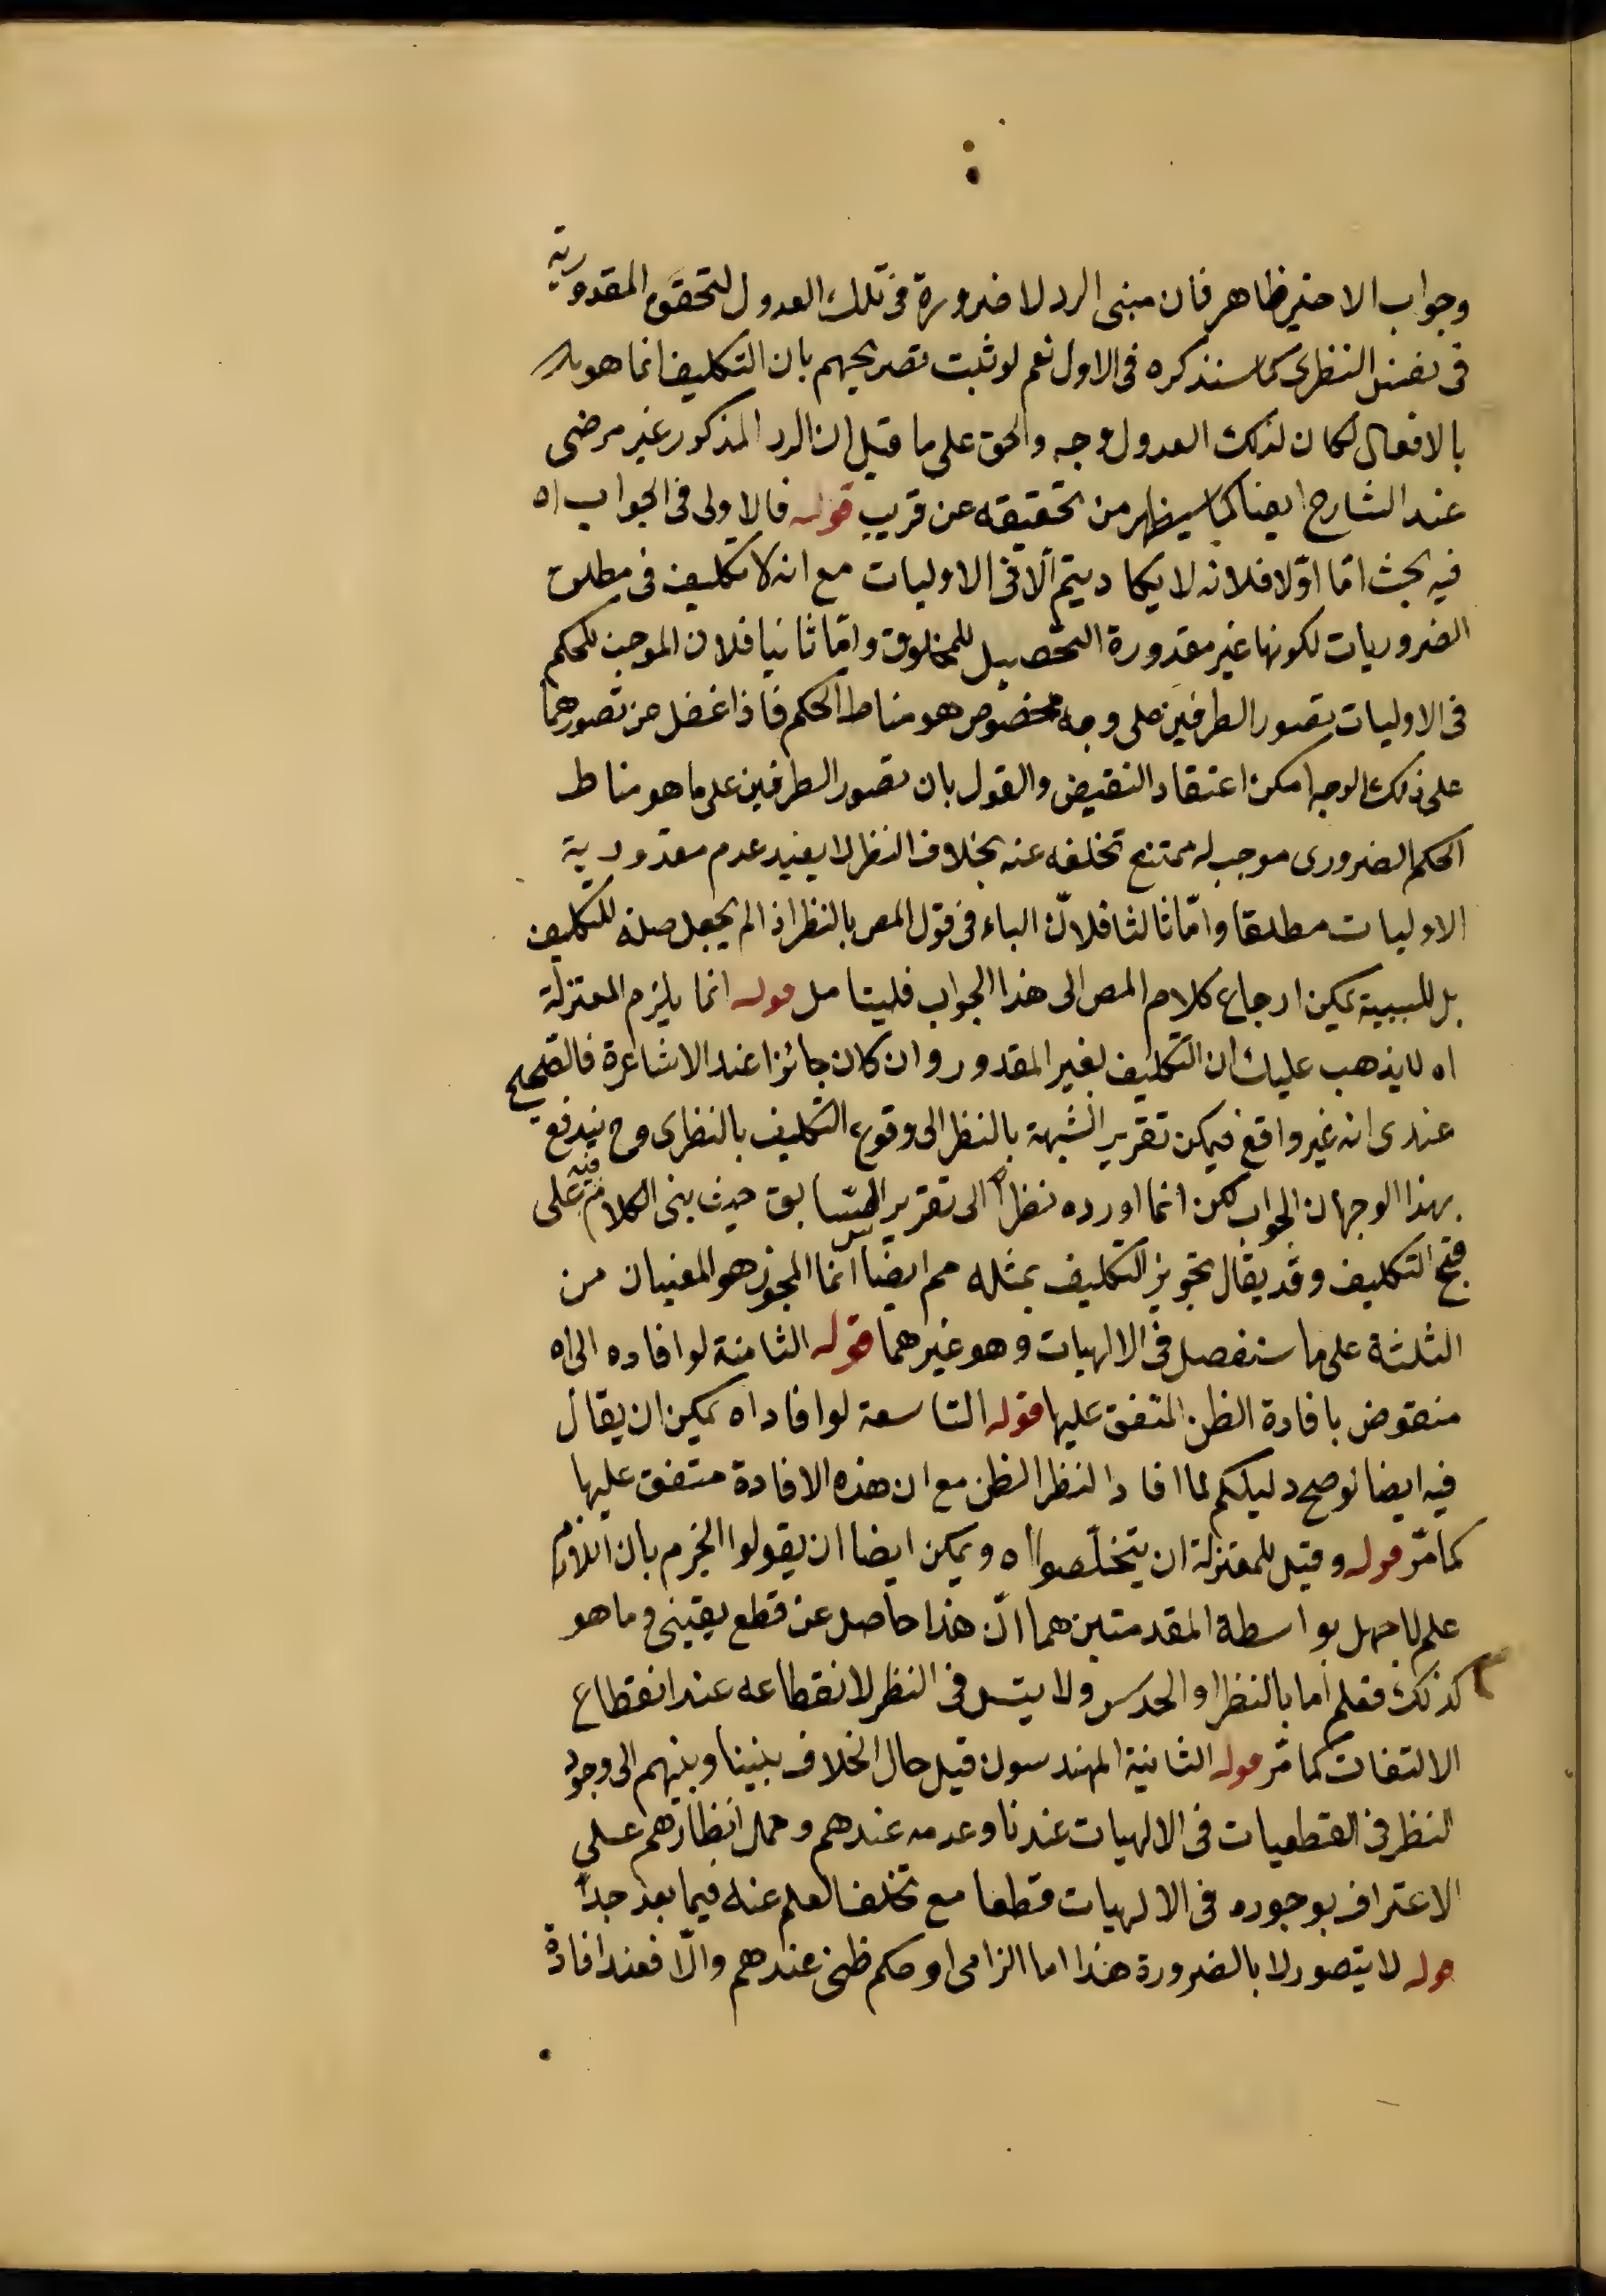 وجواب الاخير ظاهر فان مبنى الرد لا ضرورة فى تلك العدول لتحقق المقدورية
فى نفس النظرى كما سنذكره فى الاول نعم لو ثبت تصريحهم بان التكليف انما هو
بالافعال لكان لذلك العدول وجه والحق على ما قيل ان الرد المذكور غير مرضى
عند الشارح ايضا كما سيظهر من تحقيقه عن قريب قوله فالاولى فى الجواب اه
فيه بحث اما اوّلا فلانه لا يكاد يتم الّا فى الاوليات مع انه لا تكليف فى مطلق
الضروريات لكونها غير مقدورة التحصيل للمخلوق وامّا ثانيا فلان الموجب للحكم
فى الاوليات تصور الطرفين على وجه مخصوص هو مناط الحكم فاذا غفل عن تصورهما
على ذلك الوجه امكن اعتقاد النقيض والقول بان تصور الطرفين على ما هو مناط
الحكم الضرورى موجب له ممتنع تخلفه عنه بخلاف النظر لا يفيد عدم مقدورية
الاوليات مطلقا وامّا ثالثا فلانّ الباء فى قول المص بالنظر اذا لم يجعل صلة للتكليف
بل للسببية يمكن ارجاع كلام المص الى هذا الجواب فليتامل قوله انما يلزم المعتزلة
اه لا يذهب عليك ان التكليف لغير المقدور وان كان جائزا عند الاشاعرة فالصحيح
عندى انه غير واقع فيمكن تقرير الشبهة بالنظر الى وقوع التكليف بالنظرى وح يندفع
بهذا الوجهان الجواب لكن انما اورده نظرا الى تقرير السابق حيث بنى الكلام فيه على
قبح التكليف وقد يقال تجويز التكليف بمثله مم ايضا انما المجوز هو المعنيان من
الثلثة على ما ستفصل فى الالهيات وهو غيرهما قوله الثامنة لو افاده الى اه
منقوض بافادة الظن المتفق عليها قوله التاسعة لو افاد اه يمكن ان يقال
فيه ايضا لو صح دليلكم لما افاد النظر الظن مع ان هذه الافادة متفق عليها
كما مرّ قوله وقيل للمعتزلة ان يتخلّصوا اه ويمكن ايضا ان يقولوا الجزم بان اللازم
علم لا جهل بواسطة المقدمتين هما انّ هذا حاصل عن قطع يقينى وما هو
كذلك فعلم اما بالنظر او الحدس ولا يتس فى النظر لانقطاعه عند انقطاع
الالتفات كما مّر قوله الثانية المهندسون قيل حال الخلاف بيننا وبينهم الى وجود
النظر فى القطعيات فى الالهيات عندنا وعدمه عندهم وحمل انظارهم على
الاعتراف بوجوده فى الالهيات قطعا مع تخلف العلم عنه فيما بعد جدّا
قوله لا يتصور لا بالضرورة هذا اما الزامى او حكم ظنى عندهم والّا فعند افادة